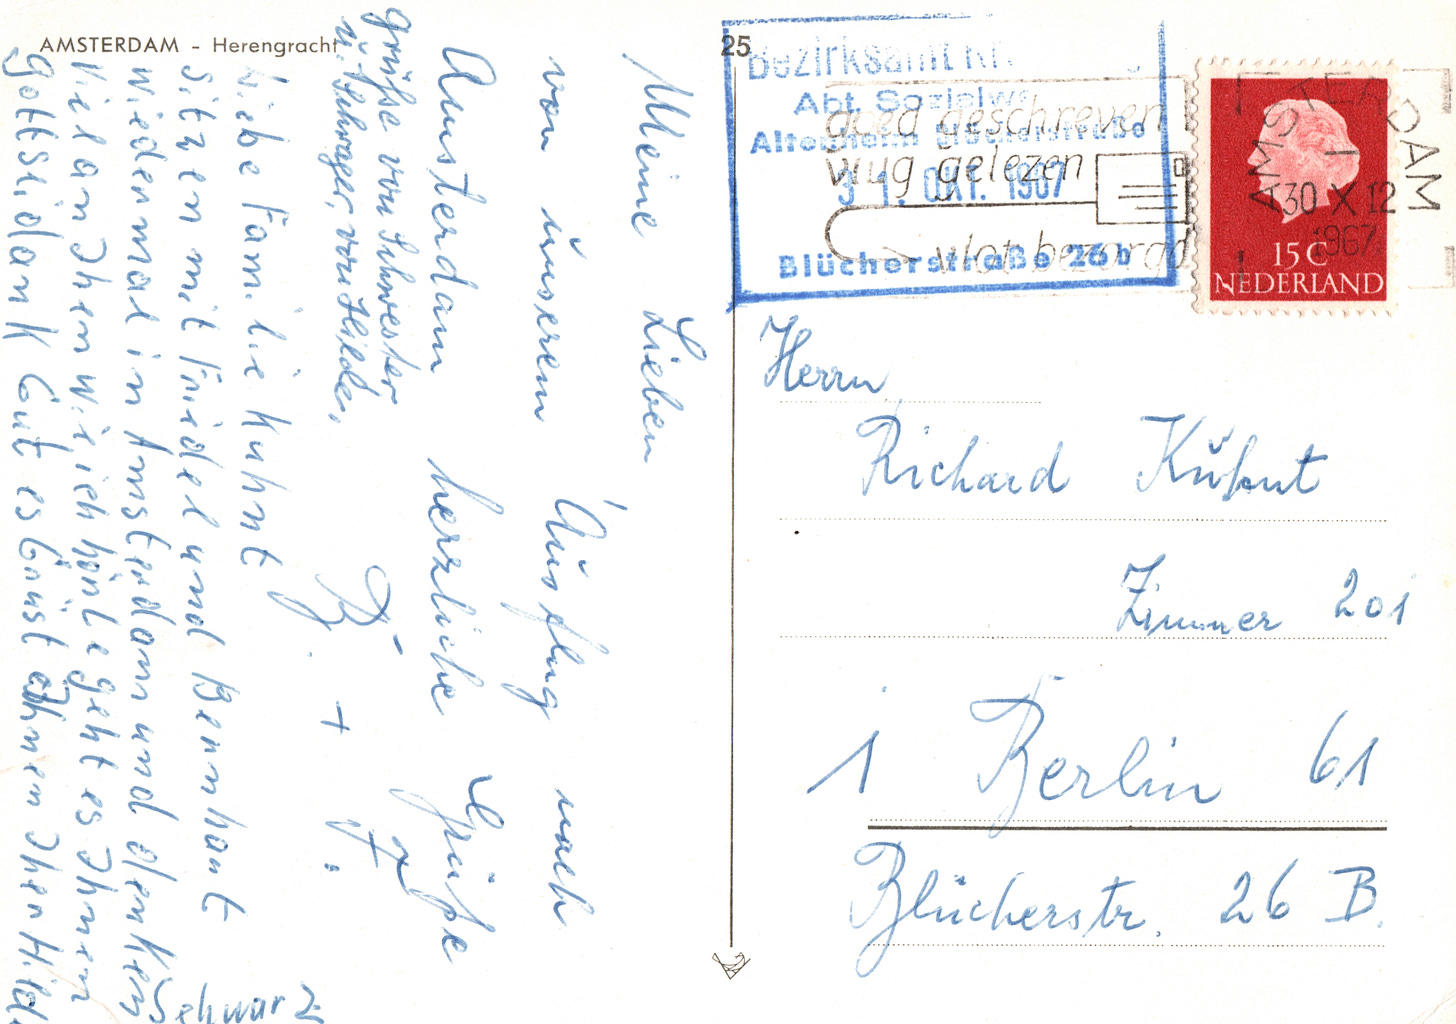 AMSTERDAM - Herengracht
25
Meine Lieben
von unserem Ausflug nach
Amsterdam herzliche Grüße
B. + F.
grüße von Schwester
u. Schwager, von Hilde,
Liebe Familie Kuhnt
Sitzen mit Friedel und Bernhart
wieder mal in Amsterdam und denken
viel an Ihnen wie ich höre geht es Ihnen
gottseidank Gut es Grüst Ihnen Iher Hilde
Schwarz
Bezirksamt
Abt. Sozialw
Altenheim Blücherstraße
31. OKT. 1967
Blücherstraße 26b
goed geschreven
vlug gelezen
vlot bezorgd
AMSTERDAM
30 X 12
1967
15 C
NEDERLAND
Herrn
Richard Kuhnt
Zimmer 201
1 Berlin 61
Blücherstr. 26 B.